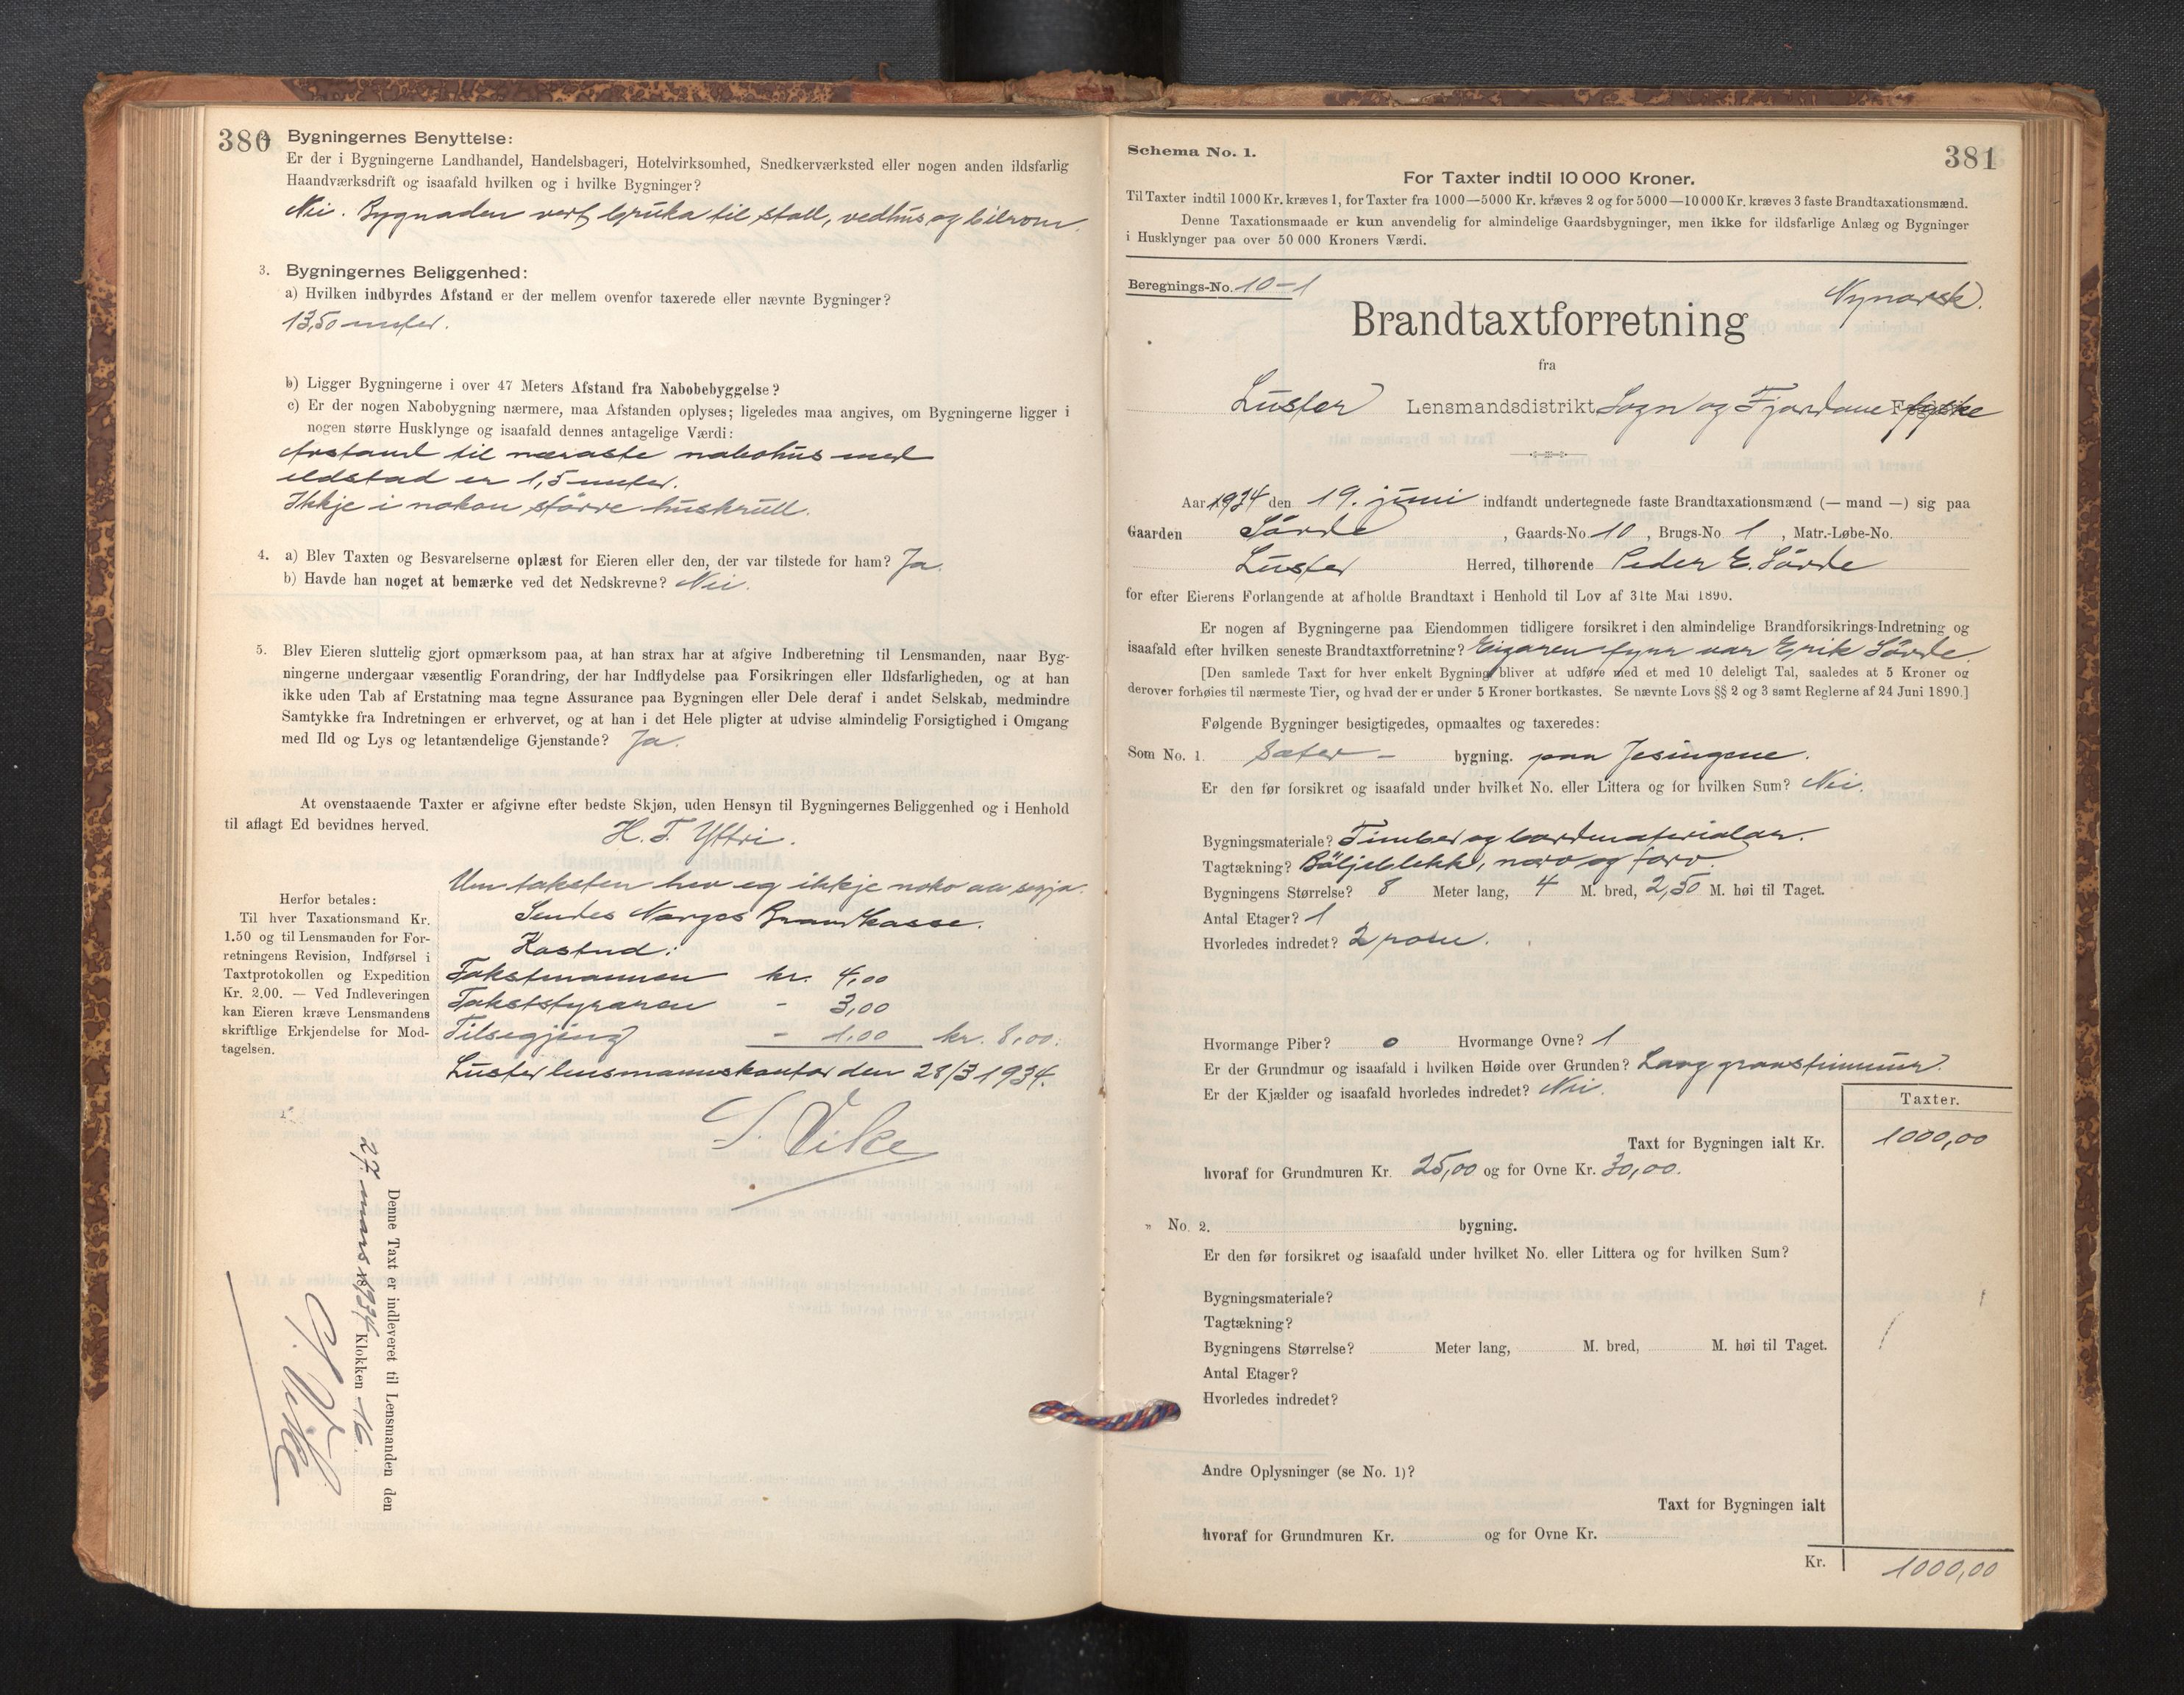 380
2. Bygningernes Benyttelse:
Er der i Bygningerne Landhandel, Handelsbageri, Hotelvirksomhed, Snedkerværksted eller nogen anden ildsfarlig
Haandværksdrift og isaafald hvilken og i hvilke Bygninger?
Nei. Bygnaden vert bruka til stall, vedhus og bilrom.
3. Bygningernes Beliggenhed:
a) Hvilken indbyrdes Afstand er der mellem ovenfor taxerede eller nævnte Bygninger?
13,50 meter.
b) Ligger Bygningerne i over 47 Meters Afstand fra Nabobebyggelse?
c) Er der nogen Nabobygning nærmere, maa Afstanden oplyses; ligeledes maa angives, om Bygningerne ligger i
nogen større Husklynge og isaafald dennes antagelige Værdi:
Avstand til næraste nabohus med
eldstad er 1,5 meter.
Ikkje i nokon større huskrull.
4. a) Blev Taxten og Besvarelserne oplæst for Eieren eller den, der var tilstede for ham? Ja.
b) Havde han noget at bemærke ved det Nedskrevne? Nei.
5. Blev Eieren sluttelig gjort opmærksom paa, at han strax har at afgive Indberetning til Lensmanden, naar Byg-
ningerne undergaar væsentlig Forandring, der har Indflydelse paa Forsikringen eller Ildsfarligheden, og at han
ikke uden Tab af Erstatning maa tegne Assurance paa Bygningen eller Dele deraf i andet Selskab, medmindre
Samtykke fra Indretningen er erhvervet, og at han i det Hele pligter at udvise almindelig Forsigtighed i Omgang
med Ild og Lys og letantændelige Gjenstande? Ja.
At ovenstaaende Taxter er afgivne efter bedste Skjøn, uden Hensyn til Bygningernes Beliggenhed og i Henhold
til aflagt Ed bevidnes herved.
H. T. Yttri.
Um taksten hev eg ikkje noko aa segja.
Sendes Norges Brandkasse.
Kostnad:
Takstmannen kr. 4,00
Takststyraren - 3,00
Tilsegjing - 1,00 kr. 8,00.
Luster lensmannskontor den 28/3 1934.
S. Vike
Herfor betales:
Til hver Taxationsmand Kr.
1.50 og til Lensmanden for For-
retningens Revision, Indførsel i
Taxtprotokollen og Expedition
Kr. 2.00. — Ved Indleveringen
kan Eieren kræve Lensmandens
skriftlige Erkjendelse for Mod-
tagelsen.
Denne Taxt er indleveret til Lensmanden den
27. mars 1934 Klokken 16.
S. Vike
381
Schema No. 1.
For Taxter indtil 10 000 Kroner.
Til Taxter indtil 1000 Kr. kræves 1, for Taxter fra 1000—5000 Kr. kræves 2 og for 5000—10 000 Kr. kræves 3 faste Brandtaxationsmænd.
Denne Taxationsmaade er kun anvendelig for almindelige Gaardsbygninger, men ikke for ildsfarlige Anlæg og Bygninger
i Husklynger paa over 50 000 Kroners Værdi.
Beregnings-No. 10-1
Nynorsk.
Brandtaxtforretning
fra
Luster Lensmandsdistrikt Sogn og Fjordane fylke
Aar 1934 den 19. juni indfandt undertegnede faste Brandtaxationsmænd (— mand —) sig paa
Gaarden Sørde, Gaards-No. 10, Brugs-No. 1, Matr.-Løbe-No.
Luster Herred, tilhørende Peder E. Sørde
for efter Eierens Forlangende at afholde Brandtaxt i Henhold til Lov af 31te Mai 1890.
Er nogen af Bygningerne paa Eiendommen tidligere forsikret i den almindelige Brandforsikrings-Indretning og
isaafald efter hvilken seneste Brandtaxtforretning? Eigaren fyrr var Erik Sørde.
[Den samlede Taxt for hver enkelt Bygning bliver at udføre med et med 10 deleligt Tal, saaledes at 5 Kroner og
derover forhøies til nærmeste Tier, og hvad der er under 5 Kroner bortkastes. Se nævnte Lovs §§ 2 og 3 samt Reglerne af 24 Juni 1890.]
Følgende Bygninger besigtigedes, opmaaltes og taxeredes:
Som No. 1. Sæter- bygning. paa
Er den før forsikret og isaafald under hvilket No. eller Littera og for hvilken Sum? Nei.
Bygningsmateriale? Timber og bordmaterialar.
Tagtækning? Bøljeblekk, næver og torv.
Bygningens Størrelse? 8 Meter lang, 4 M. bred, 2,50 M. høi til Taget.
Antal Etager? 1
Hvorledes indredet? 2 rom.
Hvormange Piber? 0 Hvormange Ovne? 1
Er der Grundmur og isaafald i hvilken Høide over Grunden? Laag graasteinmur.
Er der Kjælder og isaafald hvorledes indredet? Nei.
Taxter.
Taxt for Bygningen ialt Kr. 1000,00
hvoraf for Grundmuren Kr. 25,00 og for Ovne Kr. 30,00.
" No. 2. bygning.
Er den før forsikret og isaafald under hvilket No. eller Littera og for hvilken Sum?
Bygningsmateriale?
Tagtækning?
Bygningens Størrelse? Meter lang, M. bred, M. høi til Taget.
Antal Etager?
Hvorledes indredet?
Andre Oplysninger (se No. 1)?
Taxt for Bygningen ialt
hvoraf for Grundmuren Kr. og for Ovne Kr.
Kr. 1000,00